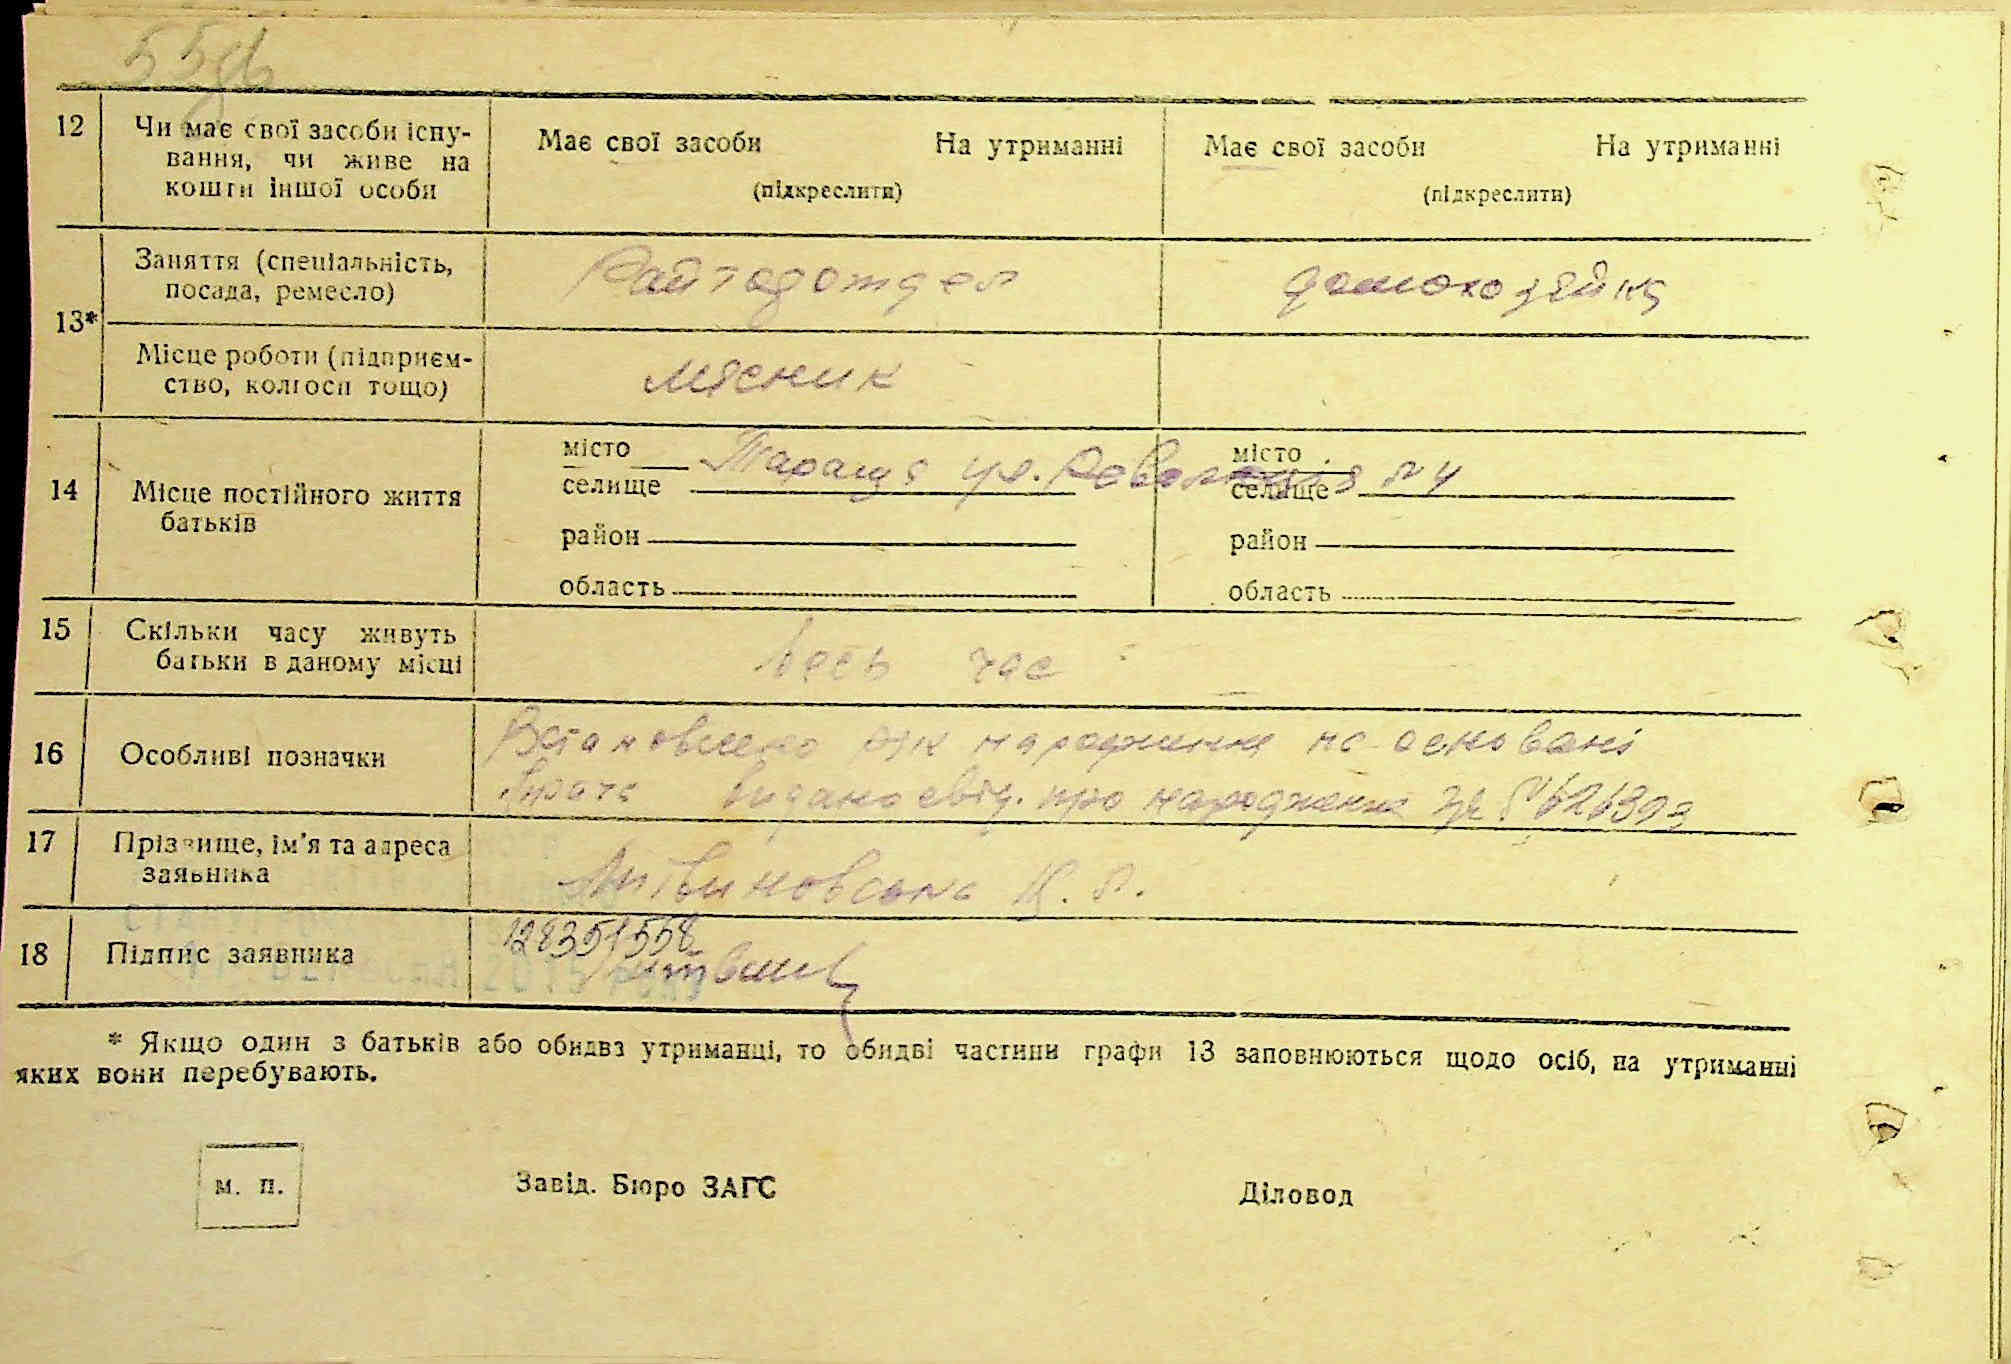 12 Чи має свої засоби існу-
вання, чи живе на
кошти іншої особи
Має свої засоби На утриманні
(підкреслити)
Має свої засоби На утриманні
(підкреслити)
13*
Заняття (спеціальність,
посада, ремесло)
домохозяйка
Місце роботи (підприєм-
ство, колгосп тощо)
мясник
14 Місце постійного життя
батьків
місто
селище
Тараща ул. Революція №4
район
область
місто
селище
район
область
15 Скільки часу живуть
батьки в даному місці
весь час
16 Особливі позначки
Встановлено рік народження на основані
врача видано свід. про народження за №
17 Прізвище, ім'я та адреса
заявника
Литвиновська
18 Підпис заявника
128351558
* Якщо один з батьків або обидва утриманці, то обидві частини графи 13 заповнюються щодо осіб, на утриманні
яких вони перебувають.
м. п.
Завід. Бюро ЗАГС
Діловод